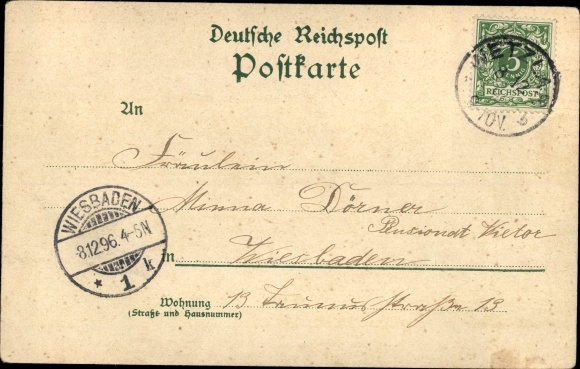 Deutsche Reichspost
Postkarte
WETZL
5
REICHSPOST
An
Fräulein
Minna Dörner
Pensionat Vietor
WIESBADEN
8.12.96. 4-5N
* 1 k
in Wiesbaden
Wohnung 13 Taunusstraße 13
(Straße und Hausnummer)